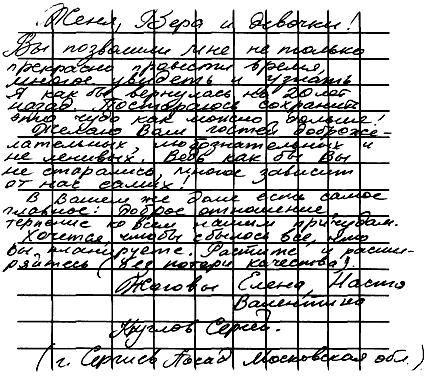 Женя, Вера и девочки!
Вы позвонили мне не только
прекрасно провести время,
многое увидеть и узнать
Я как бы вернулась на 20 лет
назад. Постараюсь сохранить
это чудо как можно дольше!
Желаю Вам гостей доброже-
лательных, любознательных и
не ленивых. Ведь как бы Вы
не старались, многое зависит
от нас самих!
В Вашем же доме есть самое
главное: доброе отношение,
терпение ко всем нашим причудам.
Хочется, чтобы сбылось все, что
Вы планируете. Растите и расши-
ряйтесь (без потери качества)
Жоговы Елена, Настя
Валентина
Круглов Сергей.
(г. Сергиев Посад Московская обл.)